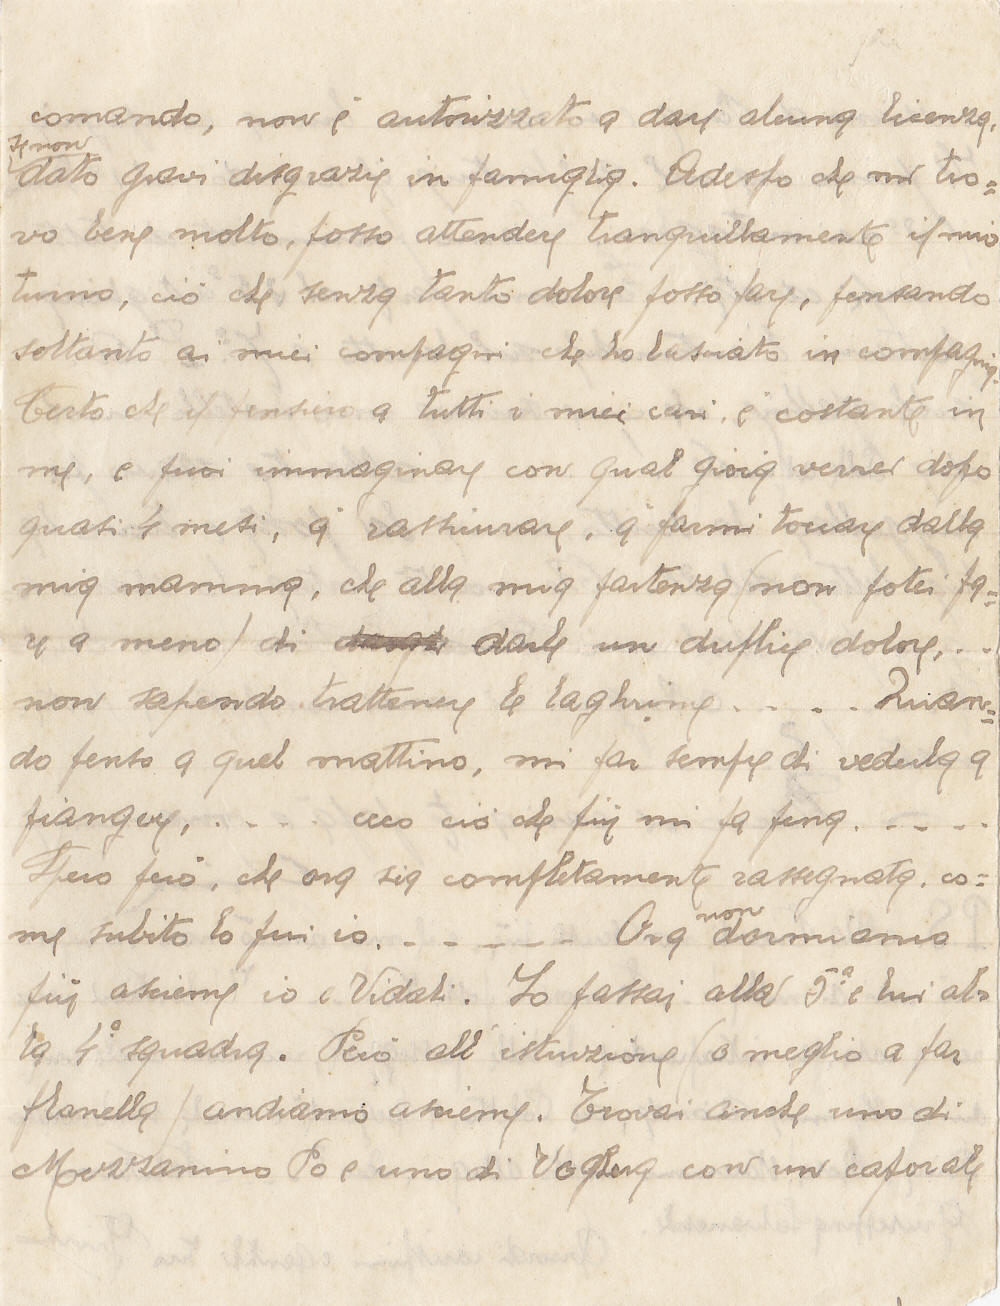 comando, non è autorizzato a dare alcuna licenza,
se non
dato gravi disgrazie in famiglia. Adesso che mi tro=
vo bene molto, posso attendere tranquillamente il mio
turno, ciò che senza tanto dolore posso fare, pensando
soltanto ai miei compagni che ho lasciato in compagnia.
Certo che il pensiero a tutti i miei cari, è costante in
me, e puoi immaginare con qual gioia verrei dopo
quasi 4 mesi, a rassicurare, a farmi toccare dalla
mia mamma, che alla mia partenza (non potei fa=
re a meno) di darle un duplice dolore, . .
non sapendo trattenere le laghrime . . . . Quan=
do penso a quel mattino, mi par sempre di vederla a
piangere, . . . . ecco ciò che più mi fa pena. . . . .
Spero però, che ora sia completamente rassegnata, co=
me subito lo fui io. . . . . . . Ora non dormiamo
più assieme io e Vidali. Io passai alla 5ª e lui al=
la 4ª squadra. Però all'istruzione (o meglio a far
flanella) andiamo assieme. Trovai anche uno di
Mezzanino Po e uno di Voghera con un caporale